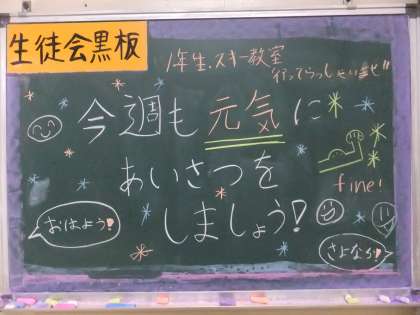 生徒会黒板
1年生.スキー教室
行ってらっしゃいませ"
今週も元気に
あいさつを
しましょう!
fine!
おはよう!
さよなら!